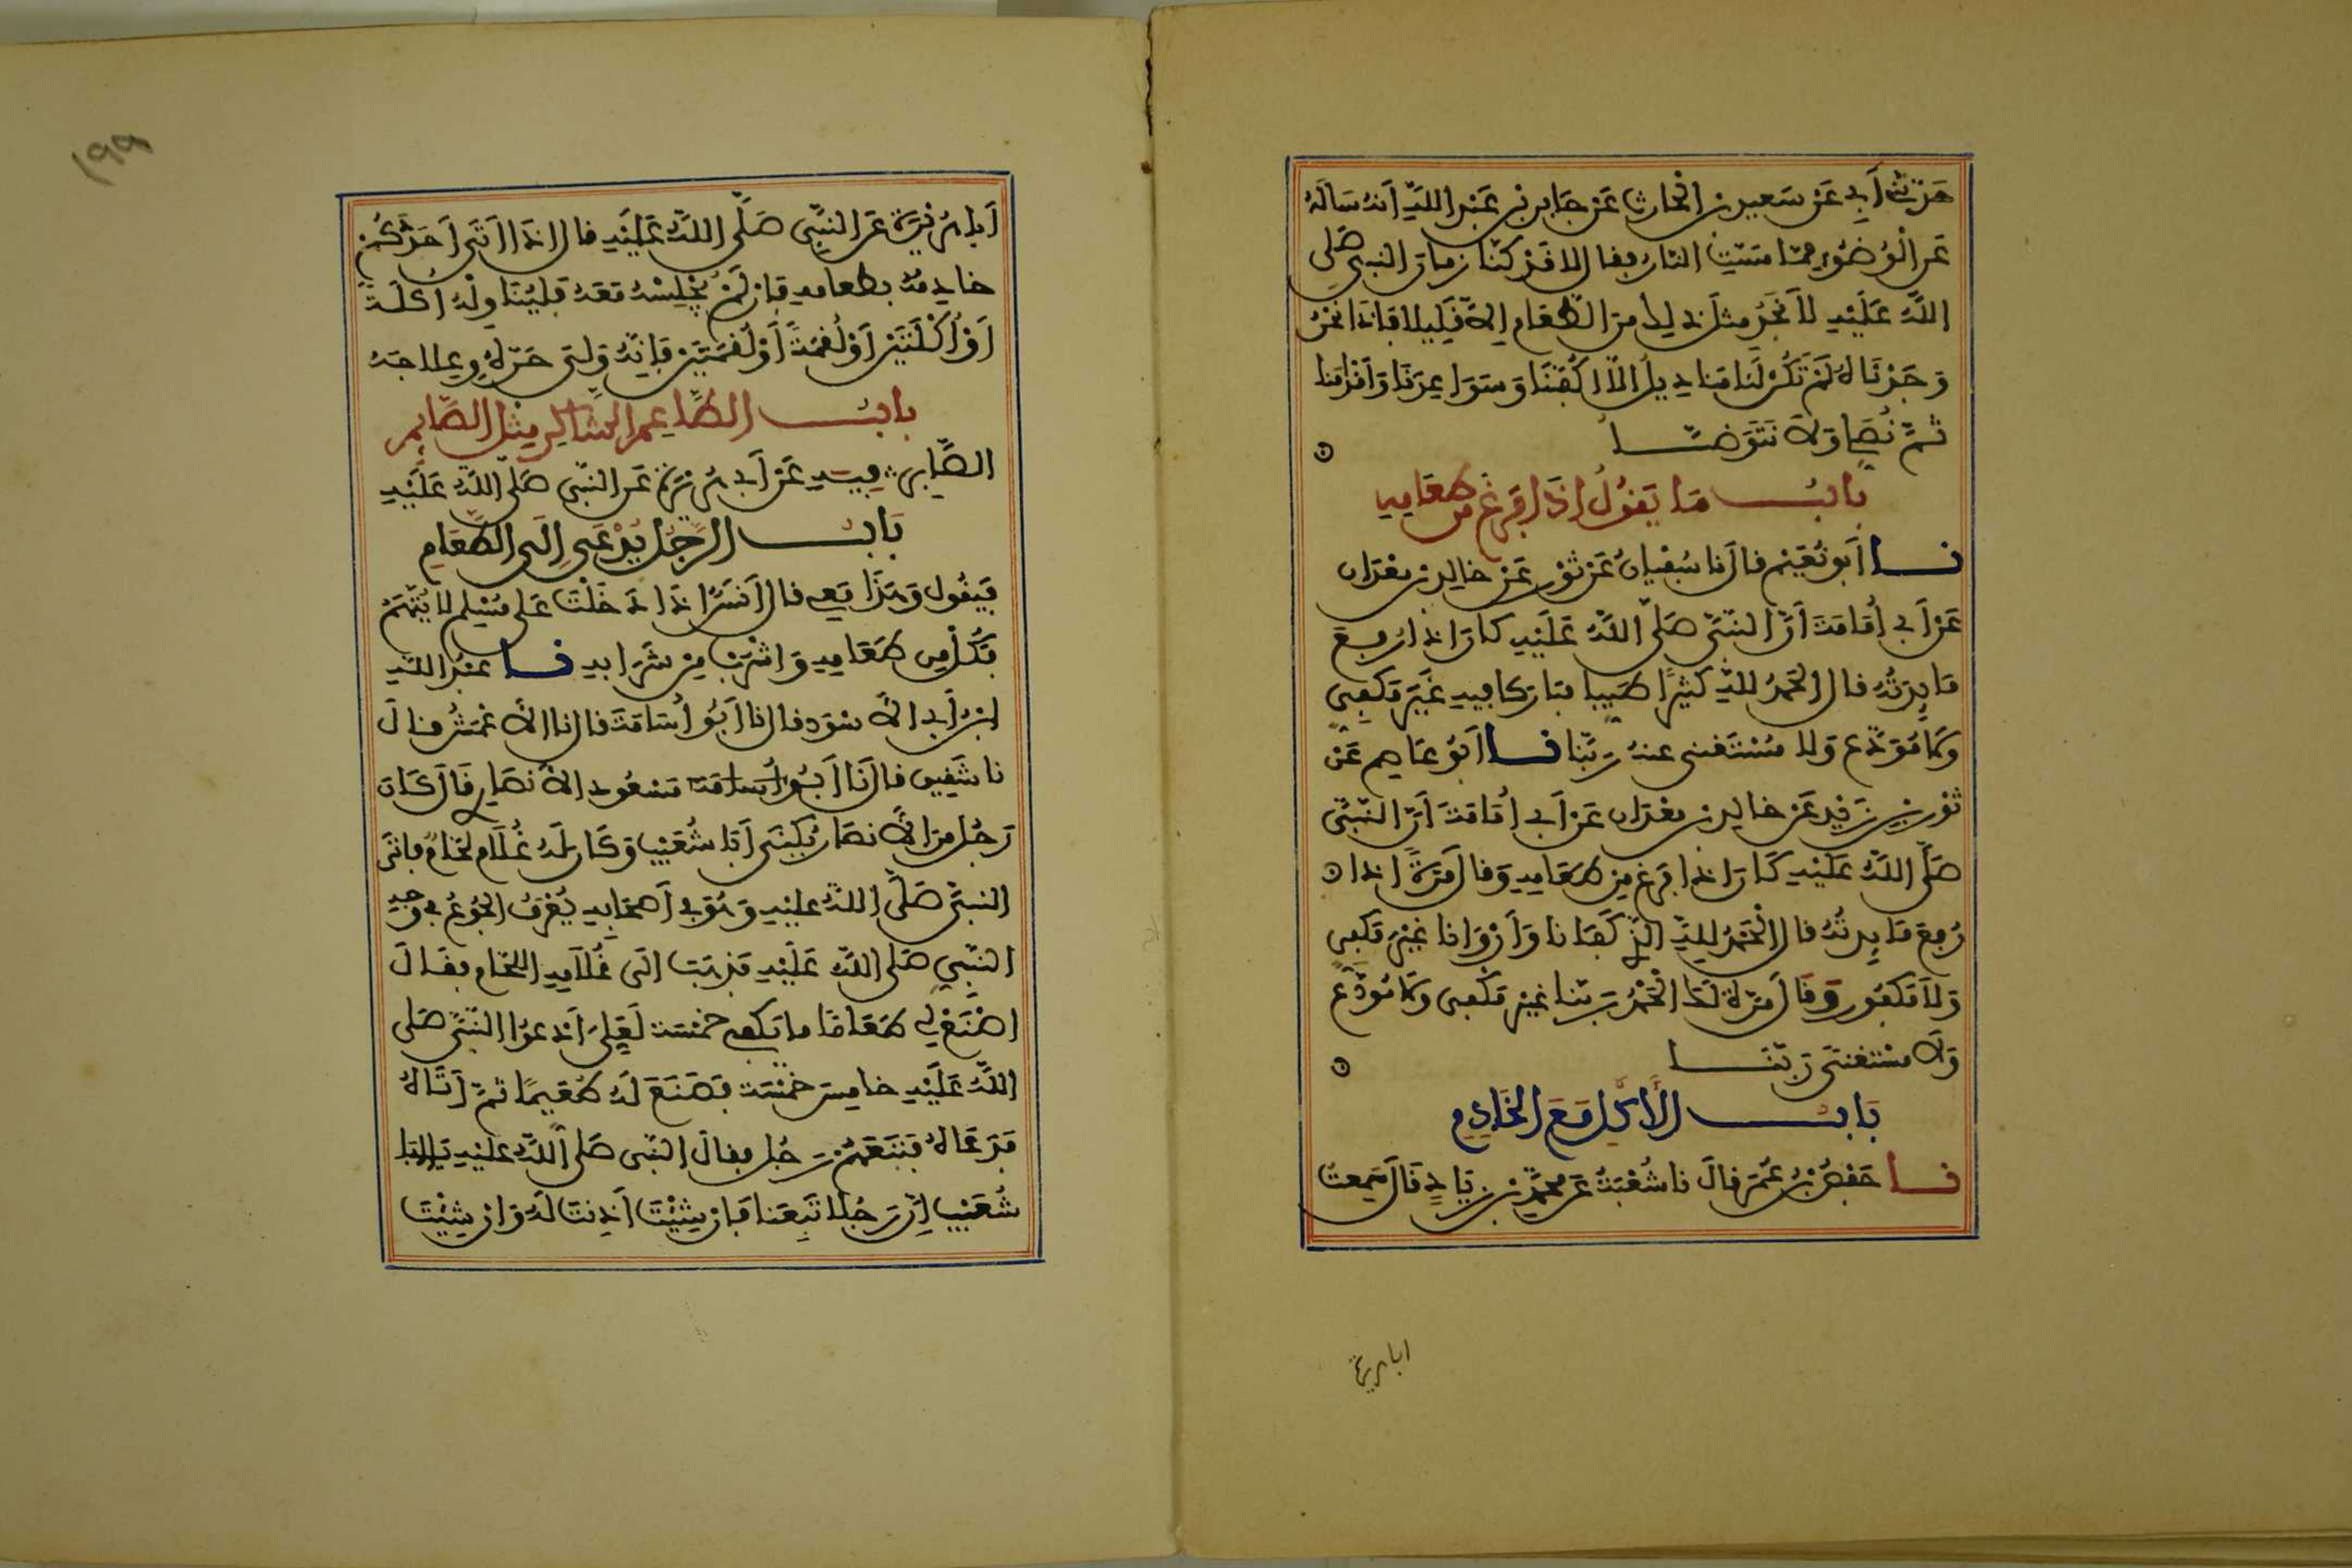 حَدَّثَنِي أَبِي عَنْ سَعِيدِ بْنِ الْحَارِثِ عَنْ جَابِرِ بْنِ عَبْدِ اللَّهِ أَنَّهُ سَأَلَهُ
عَنِ الْوُضُوءِ مِمَّا مَسَّتِ النَّارُ فَقَالَ لَا قَدْ كُنَّا زَمَانَ النَّبِيِّ صَلَّى
اللَّهُ عَلَيْهِ لَا نَجِدُ مِثْلَ ذَلِكَ مِنَ الطَّعَامِ إِلَّا قَلِيلًا فَإِذَا نَحْنُ
وَجَدْنَاهُ لَمْ تَكُنْ لَنَا مَنَادِيلُ إِلَّا أَكُفَّنَا وَسَوَاعِدَنَا وَأَقْدَامَنَا
ثُمَّ نُصَلِّي وَلَا نَتَوَضَّأُ
بَابُ مَا يَقُولُ إِذَا فَرَغَ مِنْ طَعَامِهِ
نا أَبُو نُعَيْمٍ قَالَ نَا سُفْيَانُ عَنْ ثَوْرٍ عَنْ خَالِدِ بْنِ مَعْدَانَ
عَنْ أَبِي أُمَامَةَ أَنَّ النَّبِيَّ صَلَّى اللَّهُ عَلَيْهِ كَانَ إِذَا رُفِعَ
مَائِدَتُهُ قَالَ الْحَمْدُ لِلَّهِ كَثِيرًا طَيِّبًا مُبَارَكًا فِيهِ غَيْرَ مَكْفِيٍّ
وَلَا مُوَدَّعٍ وَلَا مُسْتَغْنًى عَنْهُ رَبَّنَا نا أَبُو عَاصِمٍ عَنْ
ثَوْرِ بْنِ يَزِيدَ عَنْ خَالِدِ بْنِ مَعْدَانَ عَنْ أَبِي أُمَامَةَ أَنَّ النَّبِيَّ
صَلَّى اللَّهُ عَلَيْهِ كَانَ إِذَا فَرَغَ مِنْ طَعَامِهِ وَقَالَ مَرَّةً إِذَا
رُفِعَ مَائِدَتُهُ قَالَ الْحَمْدُ لِلَّهِ الَّذِي كَفَانَا وَأَرْوَانَا غَيْرَ مَكْفِيٍّ
وَلَا مَكْفُورٍ وَقَالَ مَرَّةً لَكَ الْحَمْدُ رَبَّنَا غَيْرَ مَكْفِيٍّ وَلَا مُوَدَّعٍ
وَلَا مُسْتَغْنًى رَبَّنَا
بَابُ الْأَكْلِ مَعَ الْخَادِمِ
نا حَفْصُ بْنُ عُمَرَ قَالَ نَا شُعْبَةُ عَنْ مُحَمَّدِ بْنِ زِيَادٍ قَالَ سَمِعْتُ
ابا هريرة
١٩٩
أَبَا هُرَيْرَةَ عَنِ النَّبِيِّ صَلَّى اللَّهُ عَلَيْهِ قَالَ إِذَا أَتَى أَحَدَكُمْ
خَادِمُهُ بِطَعَامِهِ فَإِنْ لَمْ يُجْلِسْهُ مَعَهُ فَلْيُنَاوِلْهُ أُكْلَةً
أَوْ أُكْلَتَيْنِ أَوْ لُقْمَةً أَوْ لُقْمَتَيْنِ فَإِنَّهُ وَلِيَ حَرَّهُ وَعِلَاجَهُ
بَابُ الطَّاعِمِ الشَّاكِرِ مِثْلُ الصَّائِمِ
الصَّابِرِ فِيهِ عَنْ أَبِي هُرَيْرَةَ عَنِ النَّبِيِّ صَلَّى اللَّهُ عَلَيْهِ
بَابُ الرَّجُلِ يُدْعَى إِلَى الطَّعَامِ
فَيَقُولُ وَهَذَا مَعِي قَالَ أَنَسٌ إِذَا دَخَلْتَ عَلَى مُسْلِمٍ لَا يُتَّهَمُ
فَكُلْ مِنْ طَعَامِهِ وَاشْرَبْ مِنْ شَرَابِهِ نا عَبْدُ اللَّهِ
ابْنُ أَبِي الْأَسْوَدِ قَالَ نَا أَبُو أُسَامَةَ قَالَ نَا الْأَعْمَشُ قَالَ
نَا شَقِيقٌ قَالَ نَا أَبُو أُسَامَةَ مَسْعُودٍ الْأَنْصَارِيُّ قَالَ كَانَ
رَجُلٌ مِنَ الْأَنْصَارِ يُكْنَى أَبَا شُعَيْبٍ وَكَانَ لَهُ غُلَامٌ لَحَّامٌ فَأَتَى
النَّبِيَّ صَلَّى اللَّهُ عَلَيْهِ وَهُوَ فِي أَصْحَابِهِ يُعْرَفُ الْجُوعُ فِي وَجْهِ
النَّبِيِّ صَلَّى اللَّهُ عَلَيْهِ فَذَهَبَ إِلَى غُلَامِهِ اللَّحَّامِ فَقَالَ
اصْنَعْ لِي طَعَامًا مَا يَكْفِي خَمْسَةً لَعَلِّي أَدْعُو النَّبِيَّ صَلَّى
اللَّهُ عَلَيْهِ خَامِسَ خَمْسَةٍ فَصَنَعَ لَهُ طُعَيِّمًا ثُمَّ أَتَاهُ
فَدَعَاهُ فَتَبِعَهُمْ رَجُلٌ فَقَالَ النَّبِيُّ صَلَّى اللَّهُ عَلَيْهِ يَا أَبَا
شُعَيْبٍ إِنَّ رَجُلًا تَبِعَنَا فَإِنْ شِئْتَ أَذِنْتَ لَهُ وَإِنْ شِئْتَ